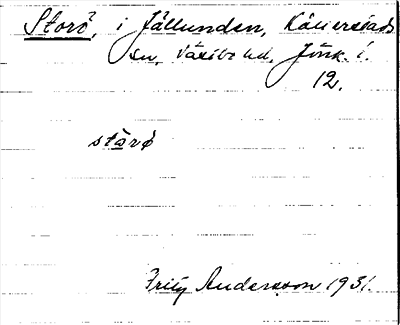 Storö, i Fållunden, Kållerstads
sn, Västbo hd, Jönk. l.
12.
stōrö
Fritz Andersson 1931.